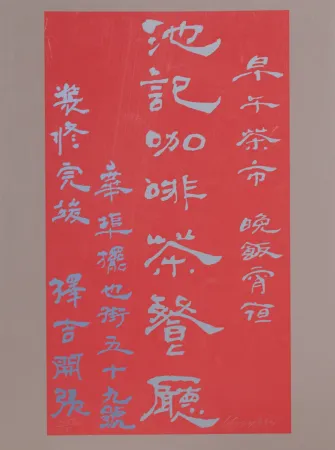 早午茶市 晚飯宵亱
池記咖啡茶餐廳
華埠擺也街五十九號
裝修完竣 擇吉開張